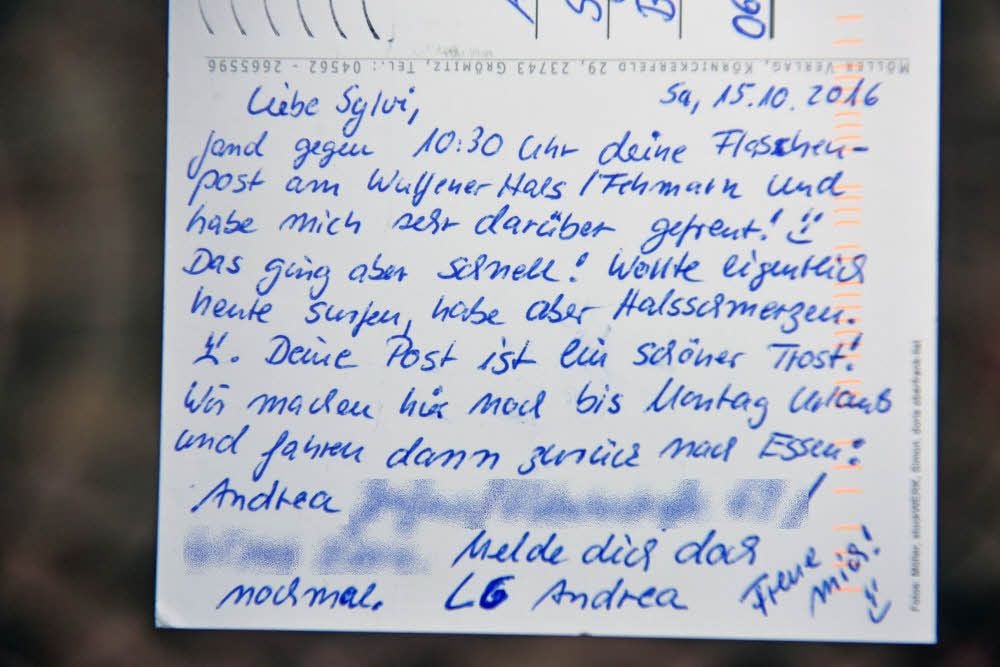 MÖLLER VERLAG, KÖRNICKERFELD 29, 23743 GRÖMITZ, TEL.: 04562 - 2665596
Sa, 15.10.2016
Liebe Sylvi,
fand gegen 10:30 Uhr deine Flaschen-
post am Wulfener Hals / Fehmarn und
habe mich sehr darüber gefreut!
Das ging aber schnell! Wollte eigentlich
heute surfen, habe aber Halsschmerzen.
Deine Post ist ein schöner Trost!
Wir machen hier noch bis Montag Urlaub
und fahren dann zurück nach Essen:
Andrea
Melde dich doch
nochmal. LG Andrea
Freue
mich!
Fotos: Möller, stockWERK, Simon, doris oberfrank-list
06